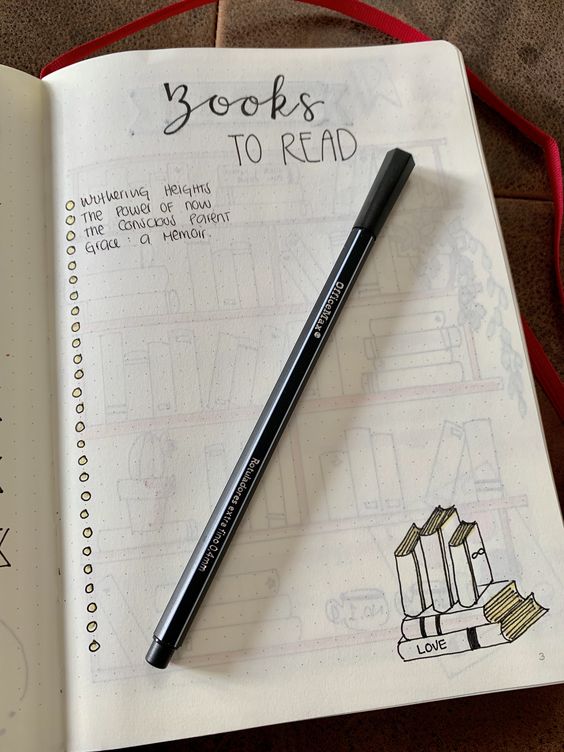 Books
TO READ
WUTHERING HEIGHTS
THE POWER OF NOW
THE CONSCIOUS PARENT
GRACE: A MEMOIR.
OfficeMax®
Rotuladores extra fino 0.4mm
LOVE
3